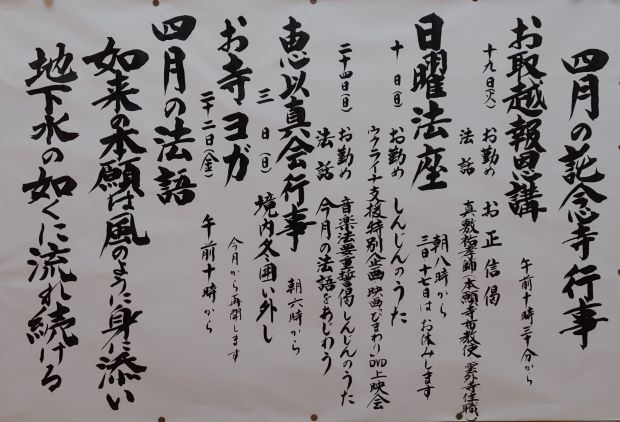 四月の記念寺行事
お取越報恩講
午前十時三十分から
十九日(火) お勤め お正信偈
法話 真敷祐孝師(本願寺布教使 住職)
日曜法座
朝八時から
三日、十七日はお休みします
十日(日) お勤め しんじんのうた
ウクライナ支援特別企画 映画「ひまわり」DVD上映会
二十四日(日) お勤め 音楽法要重誓偈 しんじんのうた
法話 今月の法語をあじわう
恵以真会行事
朝六時から
三日(日) 境内冬囲い外し
お寺ヨガ
今月から再開します
二十二日(金) 午前十時から
四月の法語
如来の本願は風のように身に添い
地下水の如くに流れ続ける